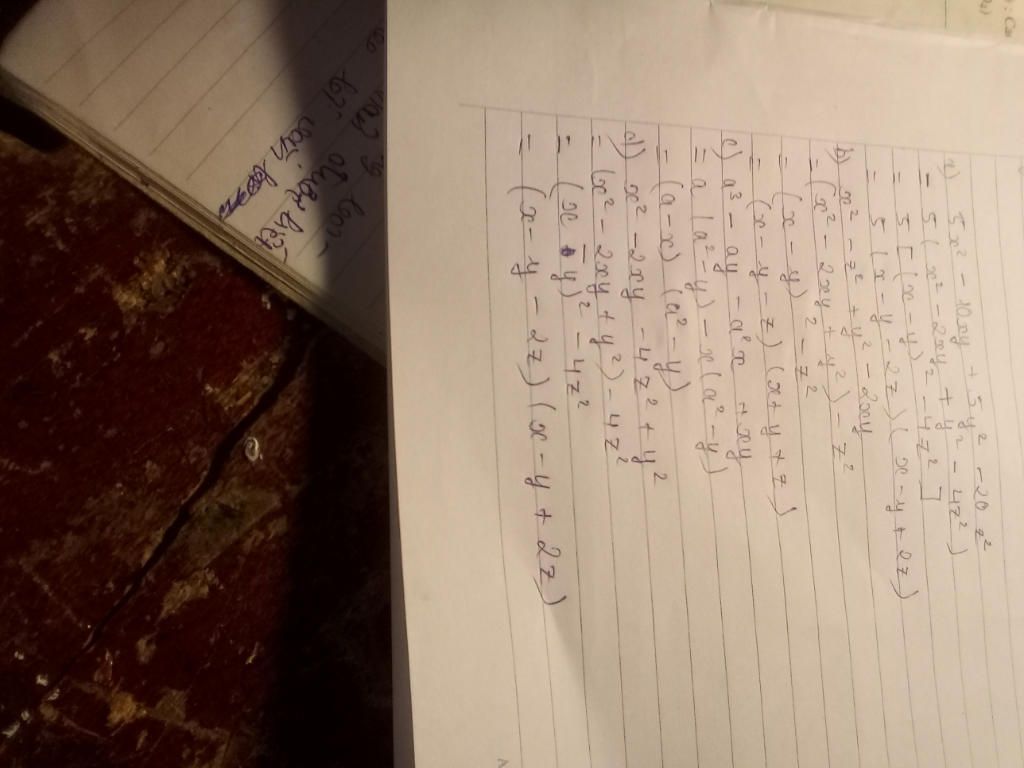 a) 5x² - 10xy + 5y² - 20z²
= 5(x² - 2xy + y² - 4z²)
= 5[(x-y)² - 4z²]
= 5(x-y-2z)(x-y+2z)
b) x² - z² + y² - 2xy
= (x² - 2xy + y²) - z²
= (x-y)² - z²
= (x-y-z)(x+y+z)
c) a³ - ay - a²x + xy
= a(a²-y) - x(a²-y)
= (a-x)(a²-y)
d) x² - 2xy - 4z² + y²
= (x² - 2xy + y²) - 4z²
= (x-y)² - 4z²
= (x-y-2z)(x-y+2z)